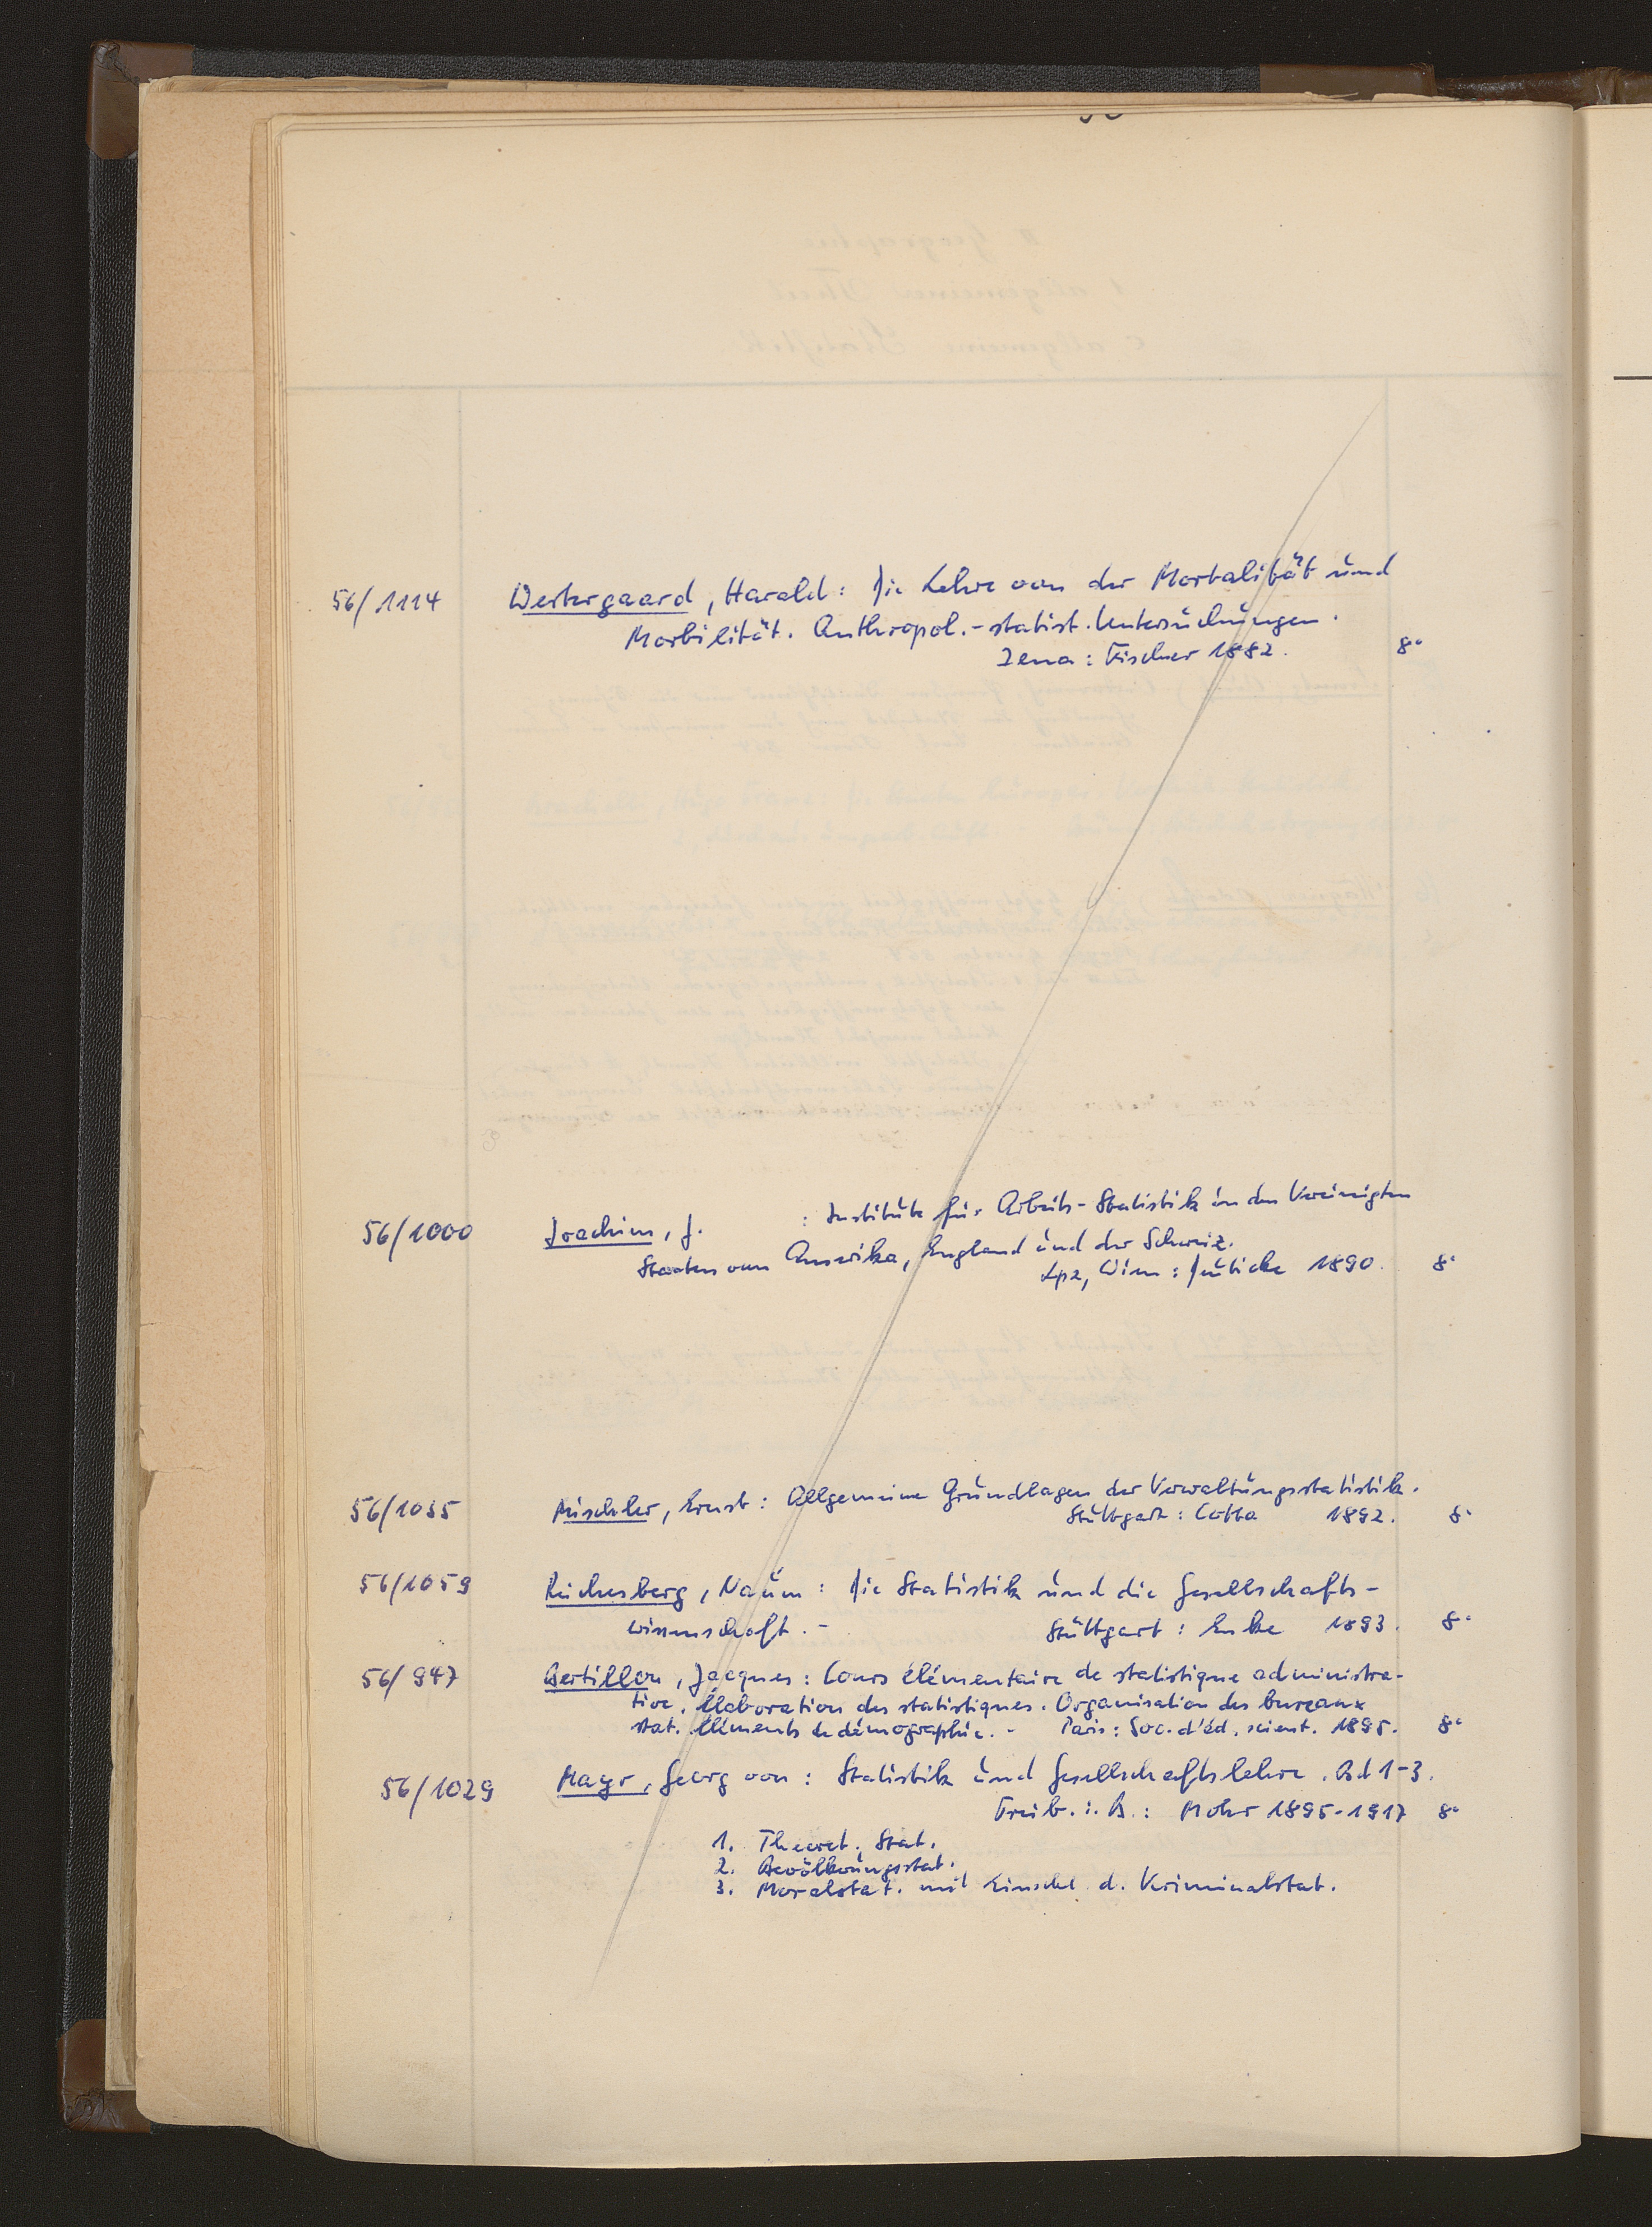 56/1114 Westergaard, Harald: Die Lehre von der Mortalität und
Morbilität. Anthropol.-statist. Untersuchungen.
Jena: Fischer 1882. 8°
56/1000 Joachim, J. : Institute für Arbeits-Statistik in den Vereinigten
Staaten von Amerika, England und der Schweiz.
Lpz, Wien: Deuticke 1890. 8°
56/1035 Mischler, Ernst: Allgemeine Grundlagen der Verwaltungsstatistik.
Stuttgart: Cotta 1892. 8°
56/1059 Reichesberg, Naúm: Die Statistik und die Gesellschafts-
wissenschaft. - Stuttgart: Enke 1893. 8°
56/947 Bertillon, Jacques: Cours élémentaire de statistique administra-
tive. Élaboration des statistiques. Organisation des bureaux
stat. Éléments de démographie. - Paris: Soc. d'éd. scient. 1895. 8°
56/1029 Mayr, Georg von: Statistik und Gesellschaftslehre. Bd 1-3.
Freib. i. B.: Mohr 1895-1917 8°
1. Theoret. Stat.
2. Bevölkerungsstat.
3. Moralstat. mit Einschl. d. Kriminalstat.